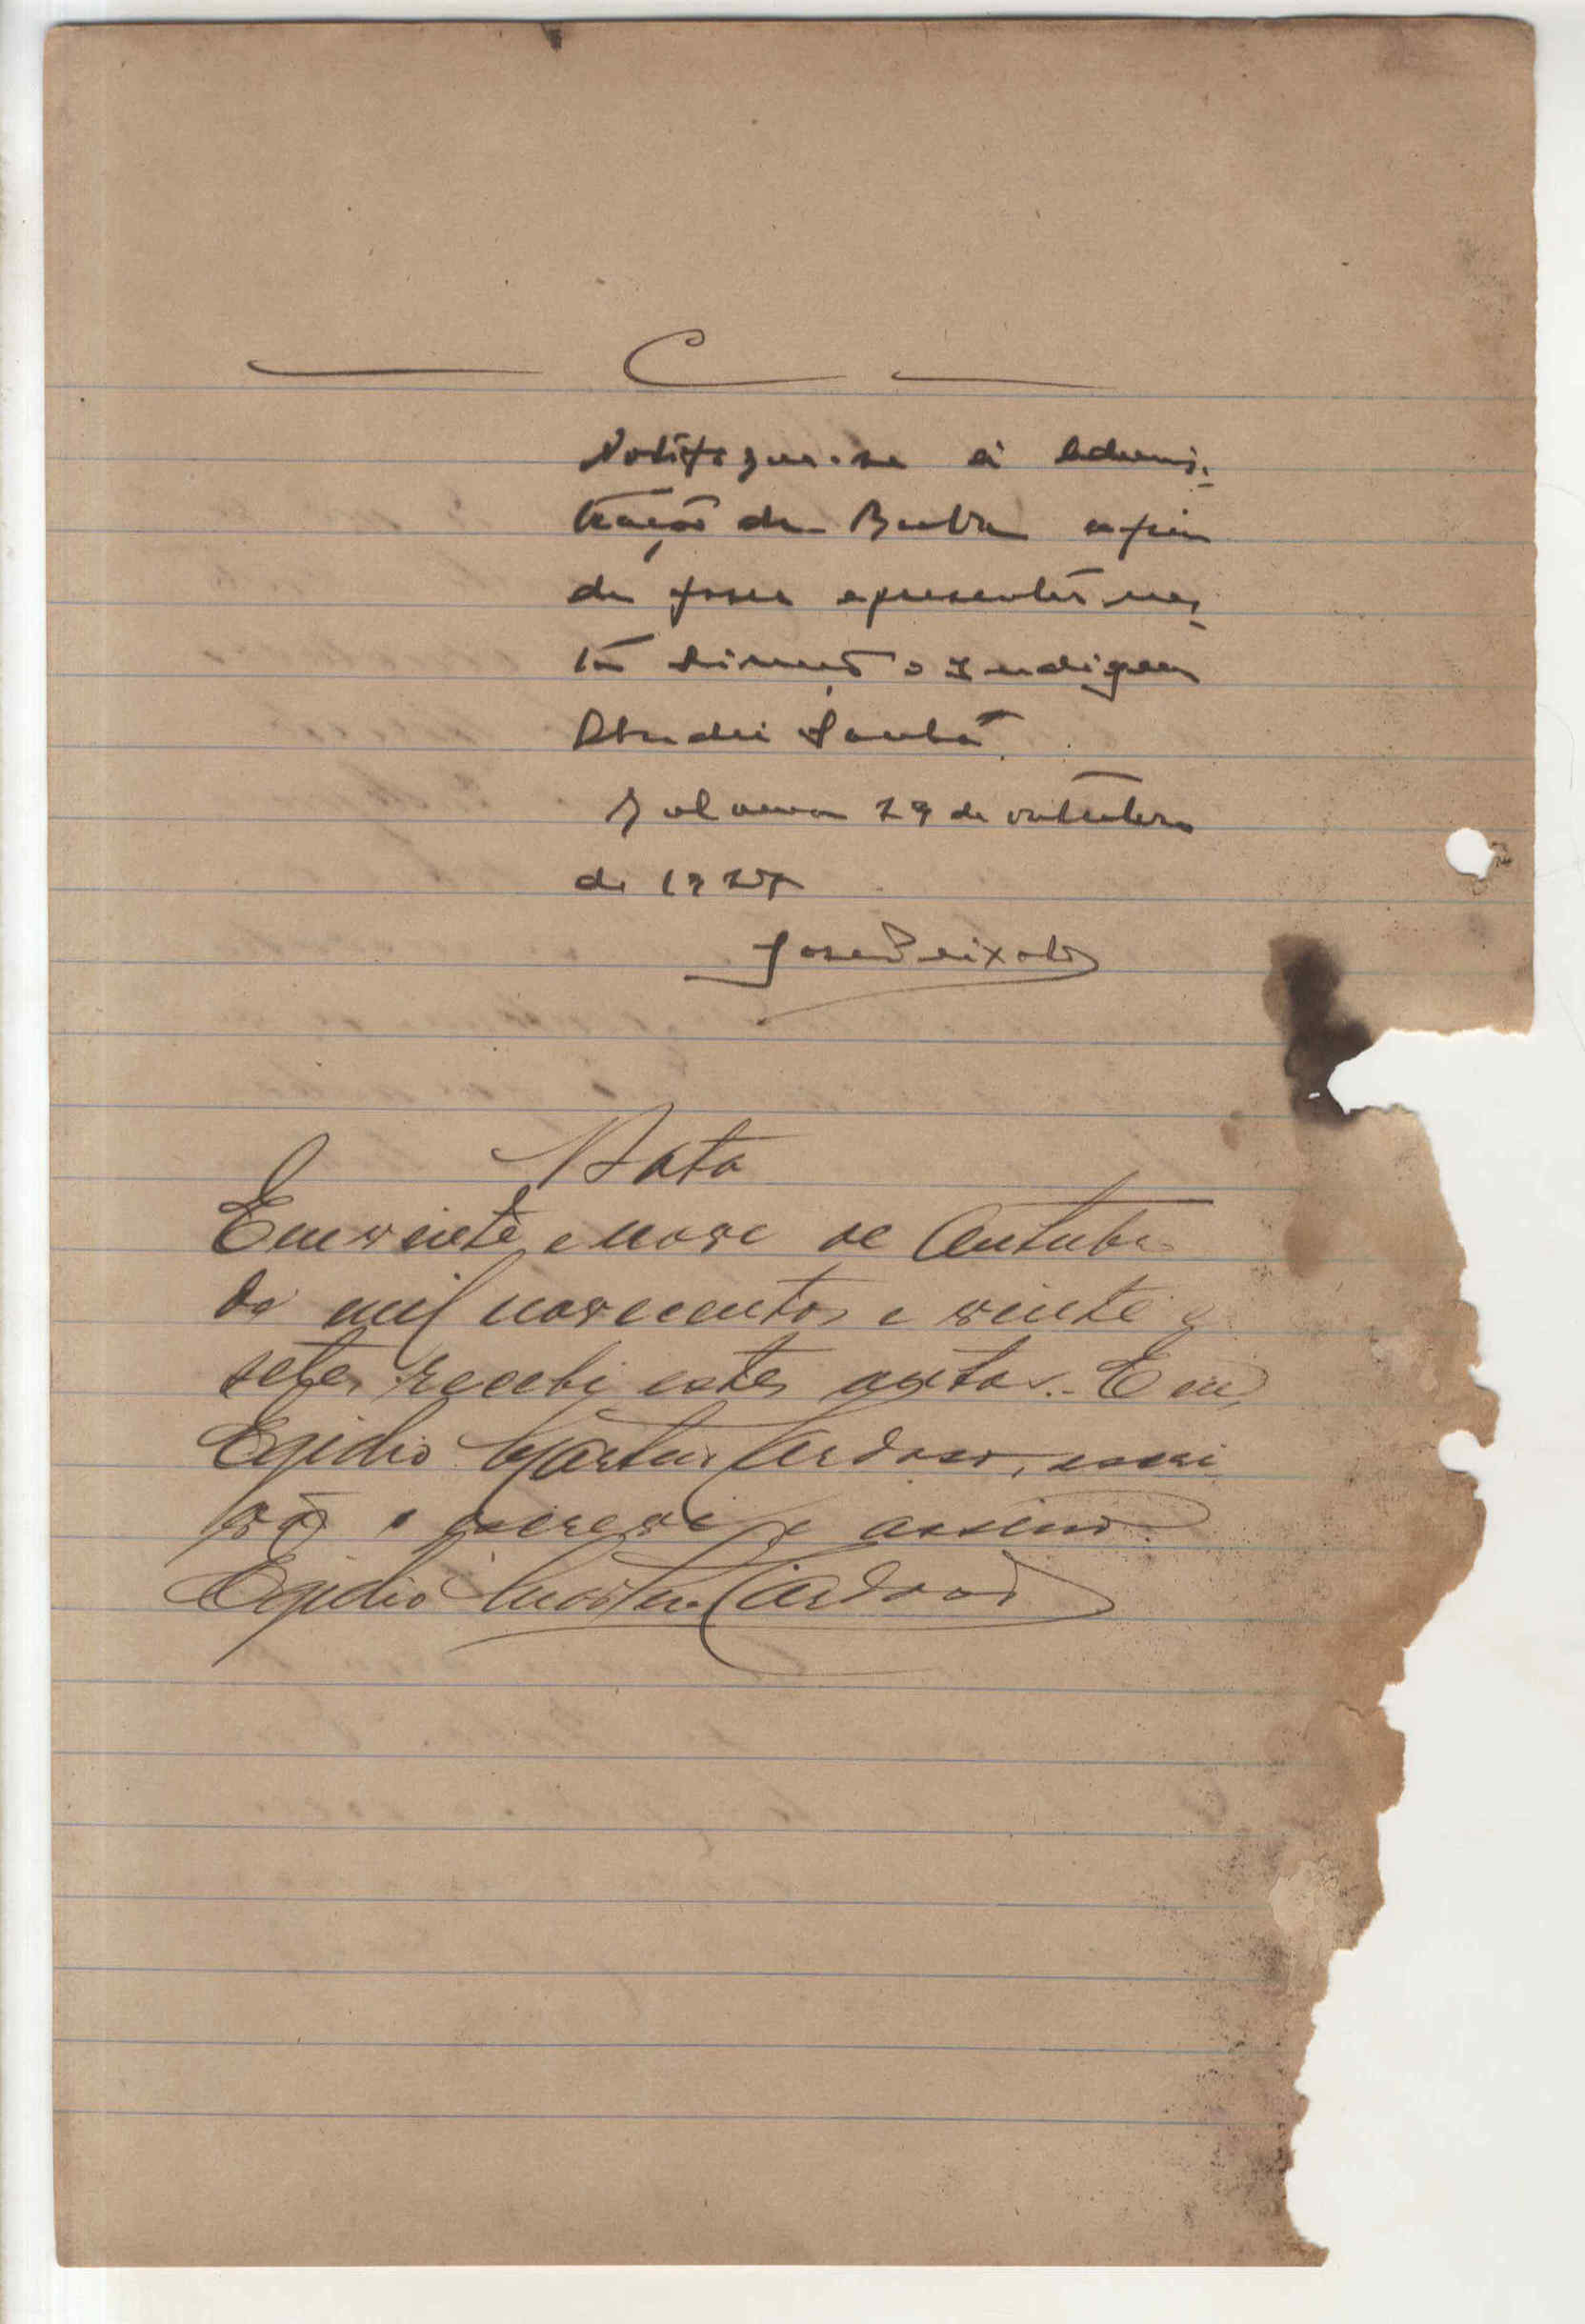 C
Notifique-se á admnis-
tração de Buba afim
de fazer apresentar nes-
ta o Indigena
Abudu
Bolama 29 de outubro
de 1927
José Peixoto
Data
Em vinte e nove de Outubro
de mil novecentos e vinte e
sete, recebi estes autos. Eu,
Egidio Martins Cardoso, escri
vão o escrevi e assino.
Egidio Martins Cardoso